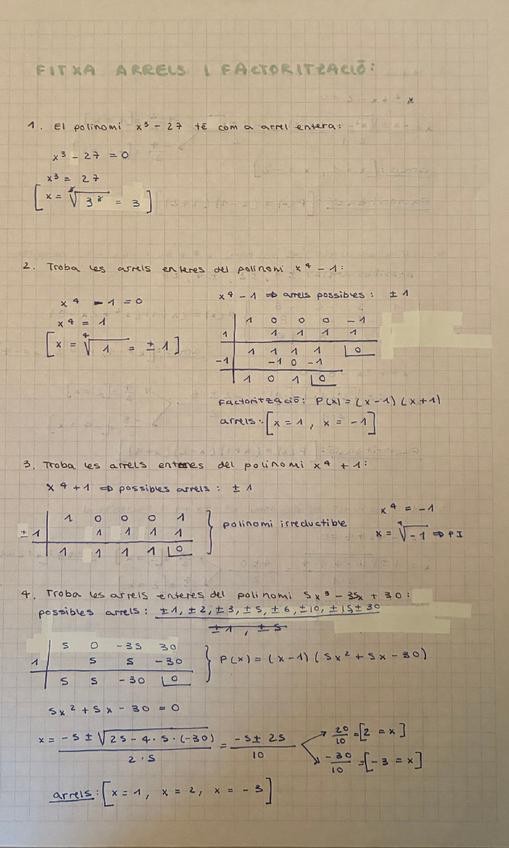 FITXA ARRELS I FACTORITZACIÓ:
1. El polinomi x³ - 27 té com a arrel entera:
x³ - 27 = 0
x³ = 27
[x = ³√3³ = 3]
2. Troba les arrels enteres del polinomi x⁴ - 1:
x⁴ - 1 = 0
x⁴ = 1
[x = ⁴√1 = ± 1]
x⁴ - 1 ⇒ arrels possibles: ± 1
1 0 0 0 -1
1 1 1 1 1
1 1 1 1 0
-1 -1 0 -1
1 0 1 0
Factorització: P(x) = (x-1)(x+1)
arrels: [x = 1, x = -1]
3. Troba les arrels enteres del polinomi x⁴ + 1:
x⁴ + 1 ⇒ possibles arrels: ± 1
1 0 0 0 1
± 1 1 1 1 1
1 1 1 1 0
} polinomi irreductible
x⁴ = -1
x = ⁴√-1 ⇒ PI
4. Troba les arrels enteres del polinomi 5x³ - 35x + 30:
possibles arrels: ±1, ±2, ±3, ±5, ±6, ±10, ±15 ±30
±1, ±5
5 0 -35 30
1 5 5 -30
5 5 -30 0
} P(x) = (x-1)(5x² + 5x - 30)
5x² + 5x - 30 = 0
x = -5 ± √25 - 4·5·(-30) / 2·5 = -5 ± 25 / 10
20/10 = [2 = x]
-30/10 = [-3 = x]
arrels: [x = 1, x = 2, x = -3]